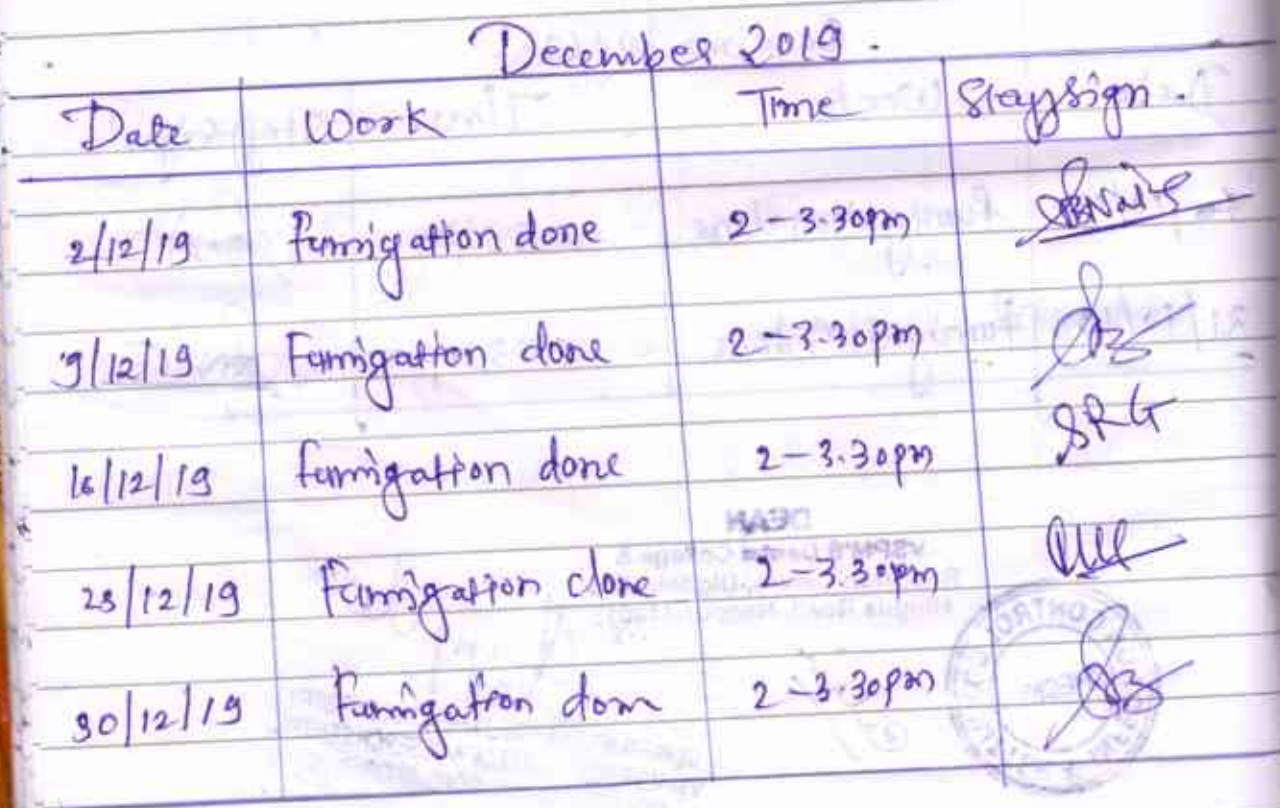 December 2019.
Date Work Time Staff sign.
2/12/19 fumigation done 2-3.30pm
9/12/19 Fumigation done 2-3.30pm
16/12/19 fumigation done 2-3.30pm SRG
23/12/19 Fumigation done 2-3.30pm
30/12/19 Fumigation done 2-3.30pm